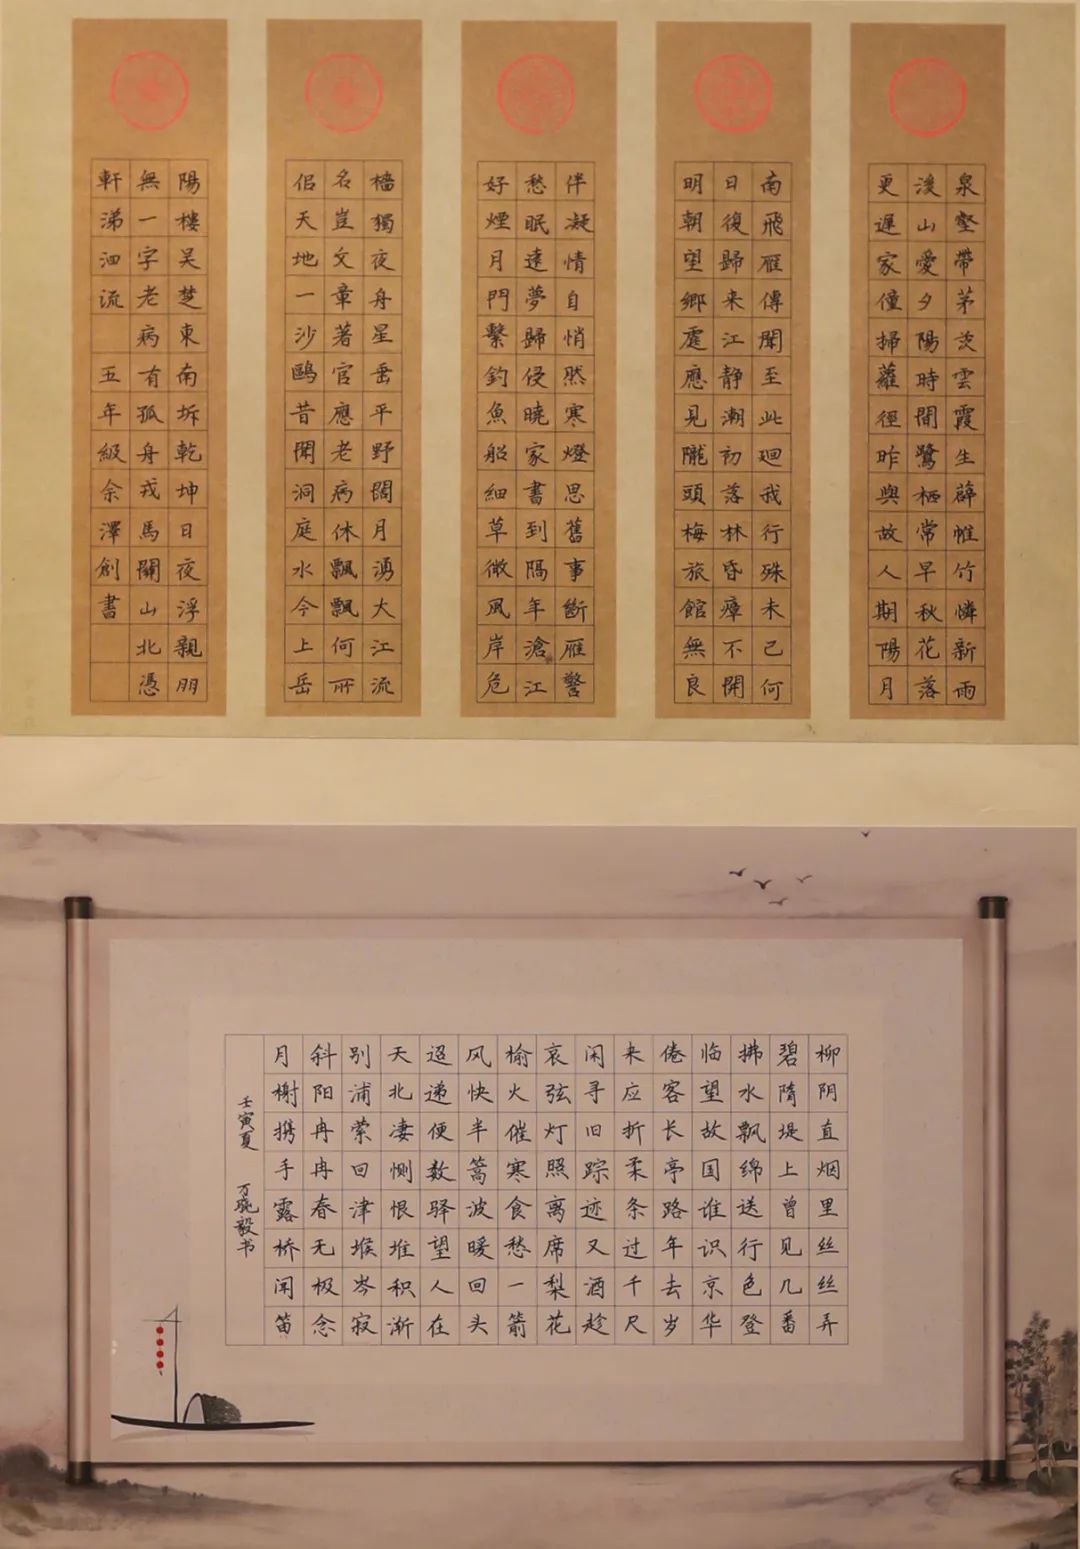 泉壑帶茅茨雲霞生薜帷竹憐新雨
後山愛夕陽時間鷺栖常早秋花落
更遲家僮掃蘿徑昨與故人期陽月
南飛雁傳聞至此迴我行殊未已何
日復歸来江静潮初落林昏瘴不開
明朝望鄉處應見隴頭梅旅館無良
伴凝情自悄然寒燈思舊事斷雁警
愁眠遠夢歸侵曉家書到隔年滄江
好煙月門繫釣魚船細草微風岸危
檣獨夜舟星垂平野闊月湧大江流
名豈文章著官應老病休飄飄何所
佀天地一沙鷗昔聞洞庭水今上岳
陽樓吴楚東南坼乾坤日夜浮親朋
無一字老病有孤舟戎馬關山北憑
軒涕泗流 五年級余澤創書
柳阴直烟里丝丝弄
碧隋堤上曾见几番
拂水飘绵送行色登
临望故国谁识京华
倦客长亭路年去岁
来应折柔条过千尺
闲寻旧踪迹又酒趁
哀弦灯照离席梨花
榆火催寒食愁一箭
风快半篙波暖回头
迢递便数驿望人在
天北凄恻恨堆积渐
别浦萦回津堠岑寂
斜阳冉冉春无极念
月榭携手露桥闻笛
壬寅夏 万晓毅书